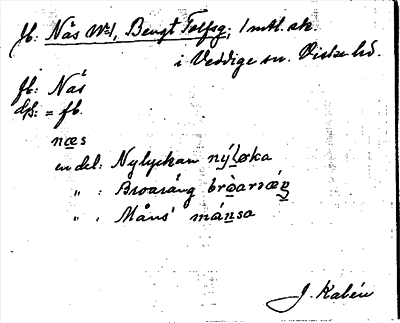 fb. Näs No1, Bengt Tolfsg; 1 mtl. sk.
i Veddige sn. Viske hd.
fb: Näs
dp: = fb.
næs
en del: Nylyckan nýl̠øka
„ : Broaräng bròaræ̀ŋ
„ : Måns' mánsa
J. Kalén